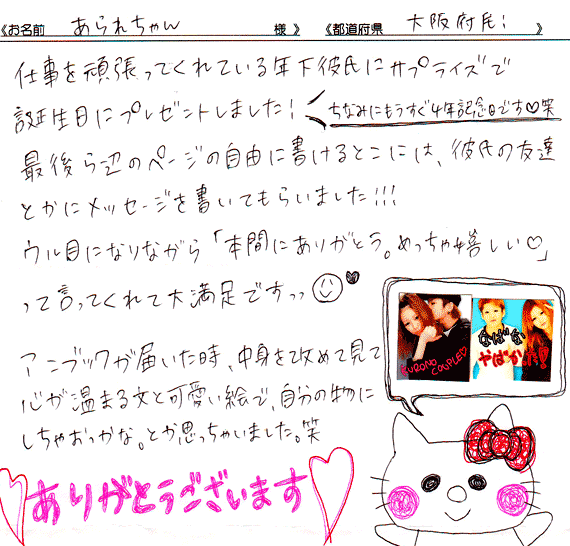 《お名前 あられちゃん 様 》 《都道府県 大阪府民! 》
仕事を頑張ってくれている年下彼氏にサプライズで
誕生日にプレゼントしました!
ちなみにもうすぐ4年記念日です♡笑
最後ら辺のページの自由に書けるとこには、彼氏の友達
とかにメッセージを書いてもらいました!!!
ウル目になりながら「本間にありがとう。めっちゃ嬉しい♡」
って言ってくれて大満足ですっっ
アンブックが届いた時、中身を改めて見て
心が温まる文と可愛い絵で、自分の物に
しちゃおっかな。とか思っちゃいました。笑
ありがとうございます
KURONO
COUPLE♡
なばな
やばか